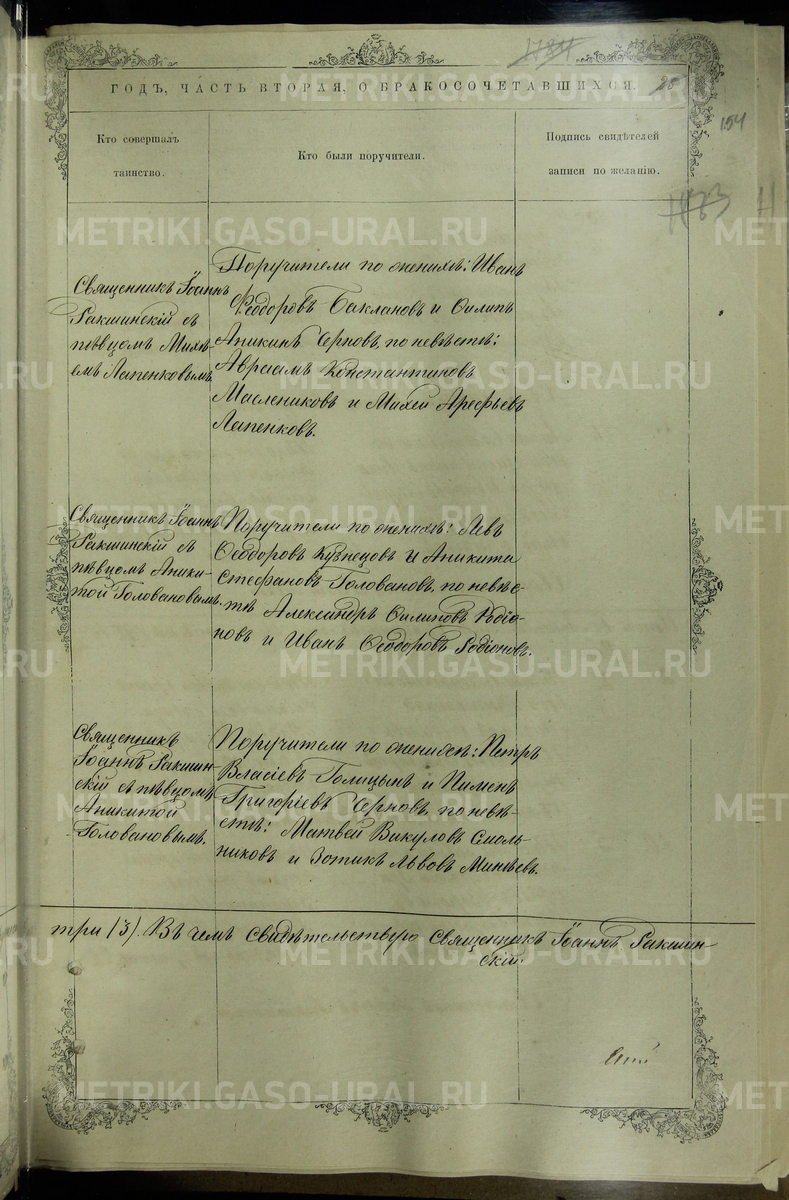 1784
ГОДЪ, ЧАСТЬ ВТОРАЯ, О БРАКОСОЧЕТАВШИХСЯ.
154
Кто совершалъ
таинство.
Кто были поручители.
Подпись свидѣтелей
записи по желанію.
Священникъ Іоаннъ
Ракшинскій съ
пѣвцомъ Михѣ-
емъ Лапенковымъ
Поручители по женихѣ: Иванъ
Ѳеодоровъ Баклановъ и Филипъ
Аникинъ Черновъ, по невѣстѣ:
Авраамъ Константиновъ
Маслениковъ и Михей Арефьевъ
Лапенковъ.
Священникъ Іоаннъ
Ракшинскій съ
пѣвцомъ Аники-
той Головановымъ.
Поручители по женихѣ: Левъ
Ѳеодоровъ Кузнецовъ и Аникита
Стефановъ Головановъ, по невѣс-
тѣ Александръ Филиповъ Родіо-
новъ и Иванъ Ѳеодоровъ Родіоновъ.
Священникъ
Іоаннъ Ракшин-
скій съ пѣвцомъ
Аникитой
Головановымъ.
Поручители по женихѣ: Петръ
Власіевъ Голицынъ и Пименъ
Григоріевъ Черновъ, по невѣ-
стѣ: Матвей Викуловъ Смоль-
никовъ и Зотикъ Львовъ Минѣевъ.
три (3). Въ чемъ свидѣтельствую Священникъ Іоаннъ Ракшин-
скій.
METRIKI.GASO-URAL.RU